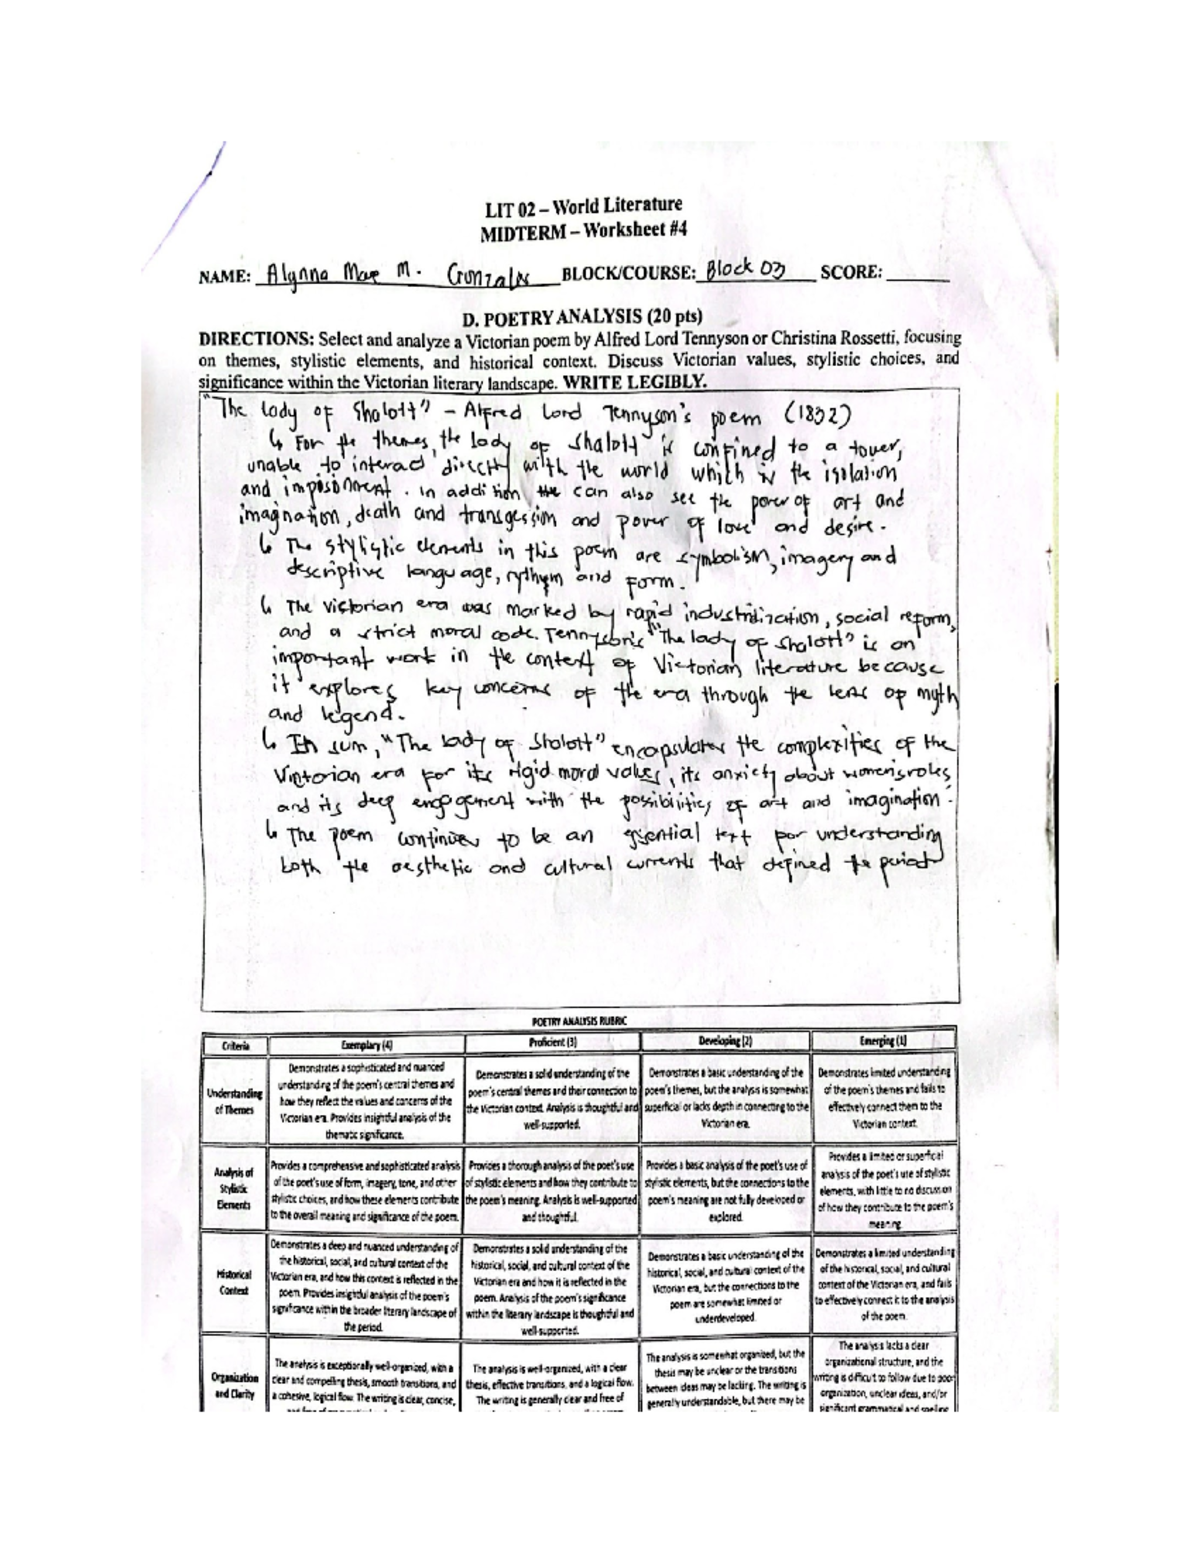 LIT 02 – World Literature
MIDTERM – Worksheet #4
NAME: Alynna Mae M. Gonzales BLOCK/COURSE: Block 03 SCORE:
D. POETRY ANALYSIS (20 pts)
DIRECTIONS: Select and analyze a Victorian poem by Alfred Lord Tennyson or Christina Rossetti, focusing
on themes, stylistic elements, and historical context. Discuss Victorian values, stylistic choices, and
significance within the Victorian literary landscape. WRITE LEGIBLY.
"The lady of Shalott" – Alfred Lord Tennyson's poem (1832)
↳ For the themes, the lady of shalott is confined to a tower,
unable to interact directly with the world which is the isolation
and imprisonment. in addition we can also see the power of art and
imagination, death and transgession and power of love and desire.
↳ The stylistic elements in this poem are symbolism, imagery and
descriptive language, rythym and form.
↳ The victorian era was marked by rapid industrialization, social reform,
and a strict moral code. Tennyson's "The lady of Shalott" is an
important work in the context of Victorian literature because
it explores key concerns of the era through the lens of myth
and legend.
↳ In sum, "The lady of Shalott" encapsulates the complexities of the
Victorian era for its rigid moral values, its anxiety about women's roles
and its deep engagement with the possibilities of art and imagination.
↳ The poem continues to be an essential text for understanding
both the aesthetic and cultural currents that defined the period
POETRY ANALYSIS RUBRIC
Criteria Exemplary (4) Proficient (3) Developing (2) Emerging (1)
Understanding
of Themes
Demonstrates a sophisticated and nuanced
understanding of the poem's central themes and
how they reflect the values and concerns of the
Victorian era. Provides insightful analysis of the
thematic significance.
Demonstrates a solid understanding of the
poem's central themes and their connection to
the Victorian context. Analysis is thoughtful and
well-supported.
Demonstrates a basic understanding of the
poem's themes, but the analysis is somewhat
superficial or lacks depth in connecting to the
Victorian era.
Demonstrates limited understanding
of the poem's themes and fails to
effectively connect them to the
Victorian context.
Analysis of
Stylistic
Elements
Provides a comprehensive and sophisticated analysis
of the poet's use of form, imagery, tone, and other
stylistic choices, and how these elements contribute
to the overall meaning and significance of the poem.
Provides a thorough analysis of the poet's use
of stylistic elements and how they contribute to
the poem's meaning. Analysis is well-supported
and thoughtful.
Provides a basic analysis of the poet's use of
stylistic elements, but the connections to the
poem's meaning are not fully developed or
explored.
Provides a limited or superficial
analysis of the poet's use of stylistic
elements, with little to no discussion
of how they contribute to the poem's
meaning.
Historical
Context
Demonstrates a deep and nuanced understanding of
the historical, social, and cultural context of the
Victorian era, and how this context is reflected in the
poem. Provides insightful analysis of the poem's
significance within the broader literary landscape of
the period.
Demonstrates a solid understanding of the
historical, social, and cultural context of the
Victorian era and how it is reflected in the
poem. Analysis of the poem's significance
within the literary landscape is thoughtful and
well-supported.
Demonstrates a basic understanding of the
historical, social, and cultural context of the
Victorian era, but the connections to the
poem are somewhat limited or
underdeveloped.
Demonstrates a limited understanding
of the historical, social, and cultural
context of the Victorian era, and fails
to effectively connect it to the analysis
of the poem.
Organization
and Clarity
The analysis is exceptionally well-organized, with a
clear and compelling thesis, smooth transitions, and
a cohesive, logical flow. The writing is clear, concise,
The analysis is well-organized, with a clear
thesis, effective transitions, and a logical flow.
The writing is generally clear and free of
The analysis is somewhat organized, but the
thesis may be unclear or the transitions
between ideas may be lacking. The writing is
generally understandable, but there may be
The analysis lacks a clear
organizational structure, and the
writing is difficult to follow due to poor
organization, unclear ideas, and/or
significant grammatical and spelling